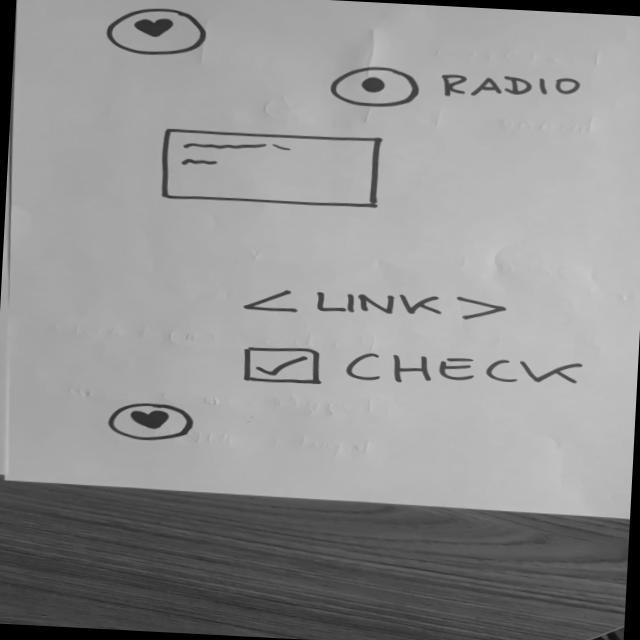 RADIO
< LINK >
CHECK